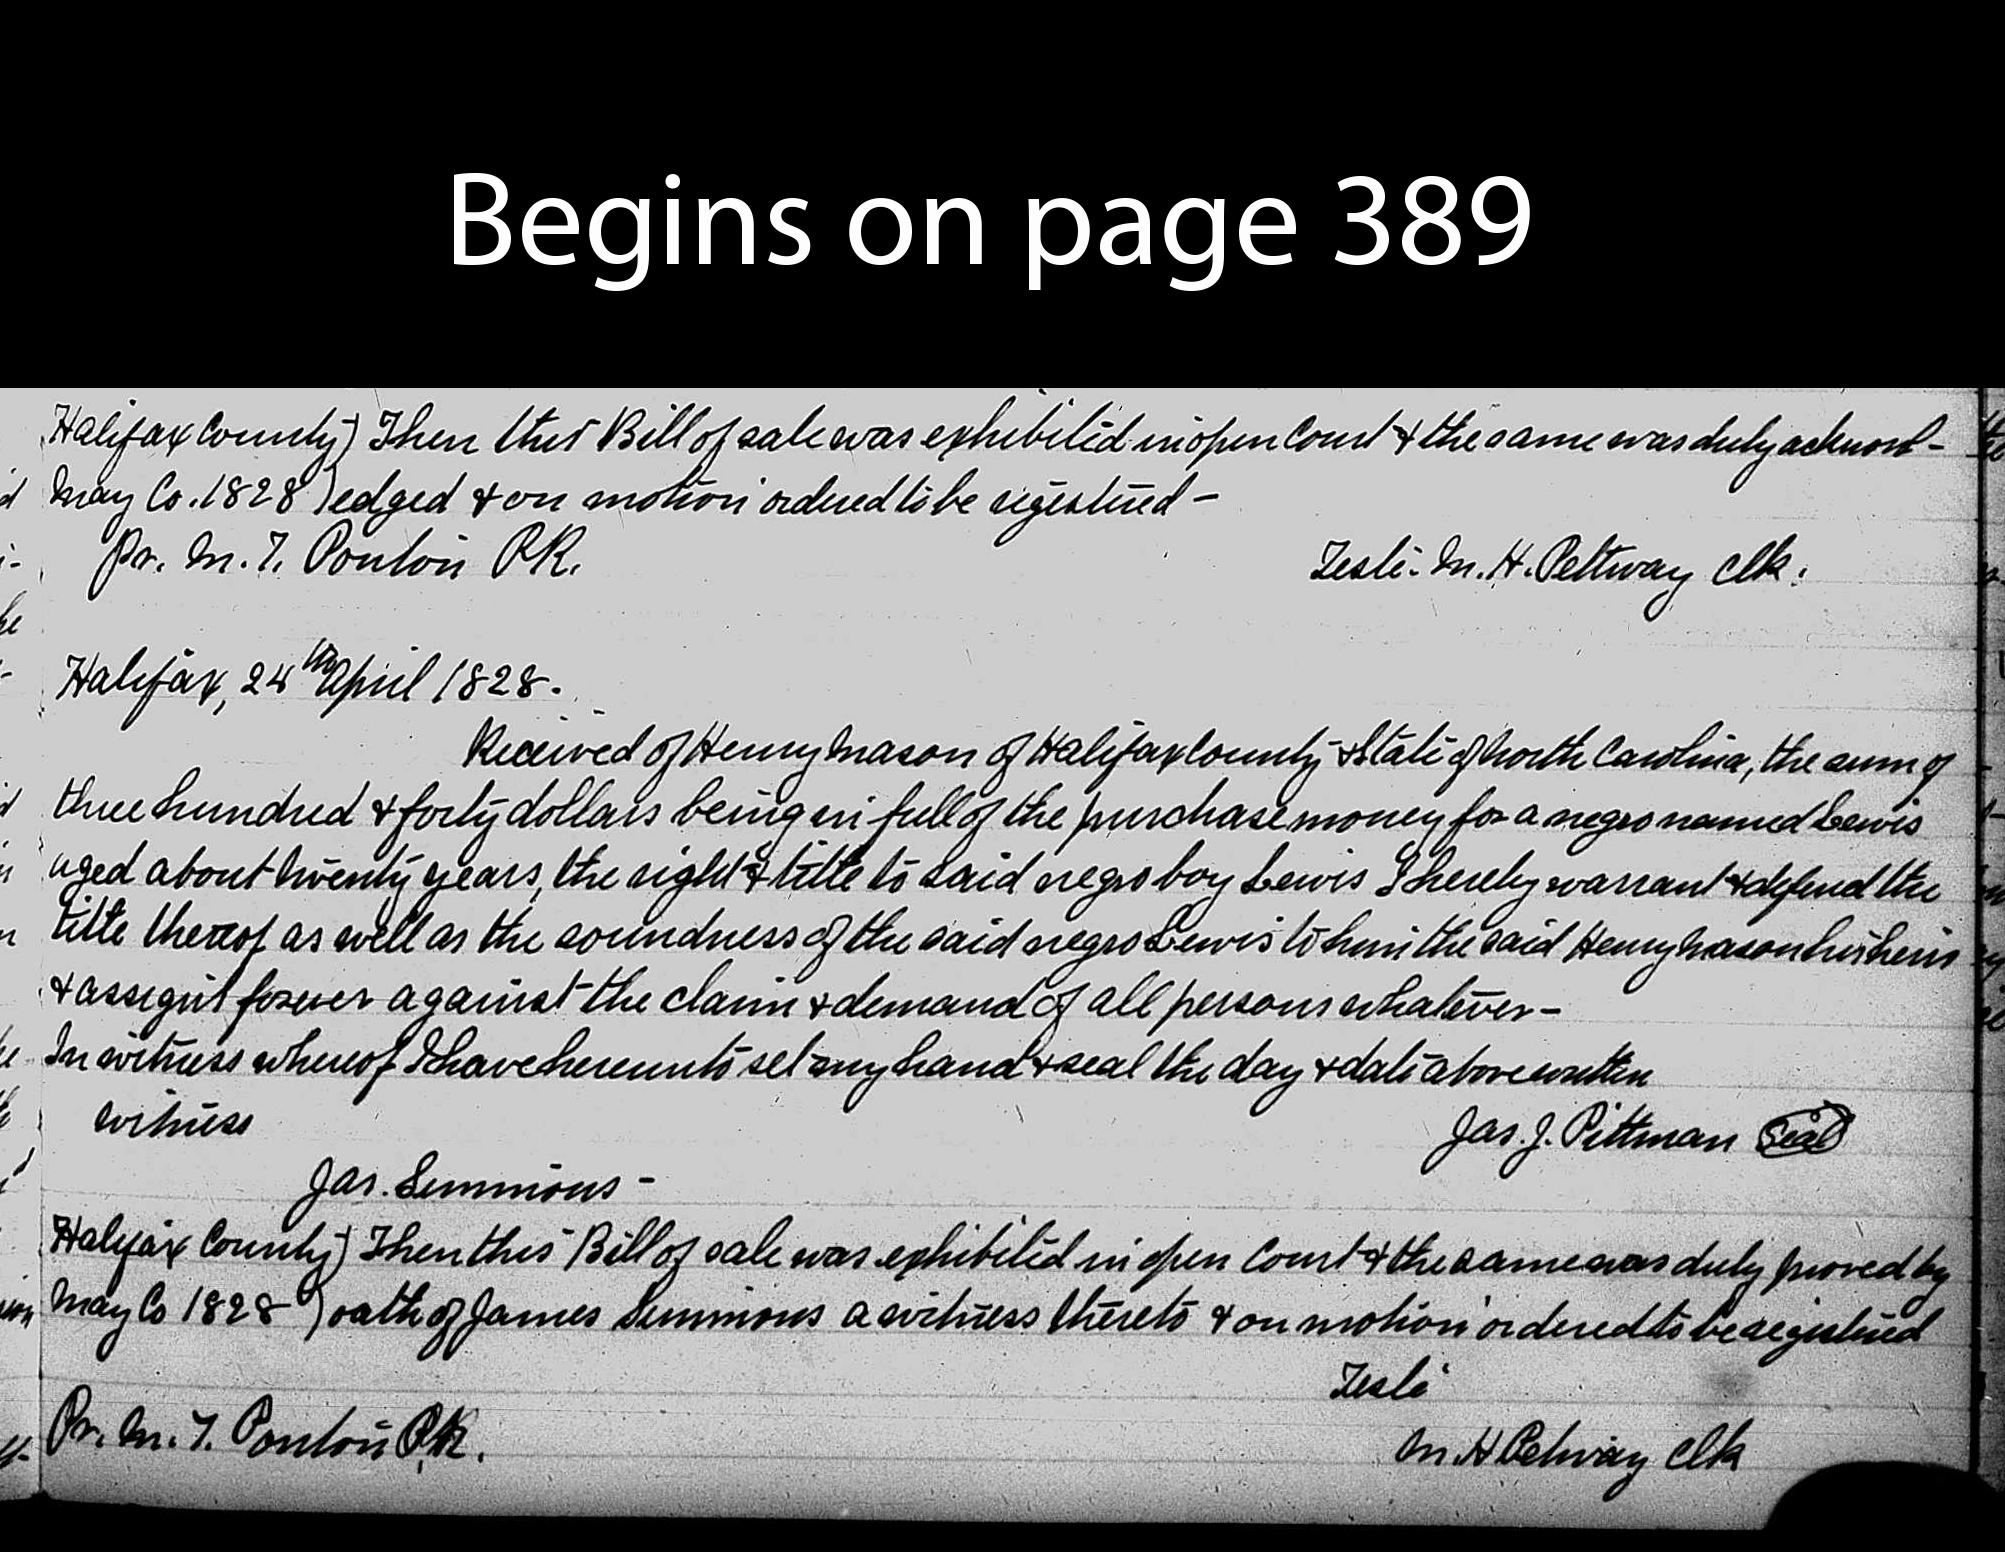 Begins on page 389
Halifax County) Then this Bill of sale was exhibited in open Court & the same was duly acknowl-
May Co. 1828 )edged & on motion ordered to be registered -
Pr. M. T. Ponton P.R.
Teste. M. H. Pettway Clk.
Halifax, 24th April 1828.
Received of Henry Mason of Halifax County & State of North Carolina, the sum of
three hundred & forty dollars being in full of the purchase money for a negro named Lewis
aged about twenty years, the right & title to said negro boy Lewis I hereby warrant & defend the
title thereof as well as the soundness of the said negro Lewis to him the said Henry Mason his heirs
& assigns forever against the claim & demand of all persons whatever -
In witness whereof I have hereunto set my hand & seal the day & date above written
witness
Jas. J. Pittman Seal
Jas. Simmons -
Halifax County) Then this Bill of sale was exhibited in open Court & the same was duly proved by
May Co 1828 ) oath of James Simmons a witness thereto & on motion ordered to be registered
Teste
Pr. M. T. Ponton P.R.
M. H Petway Clk